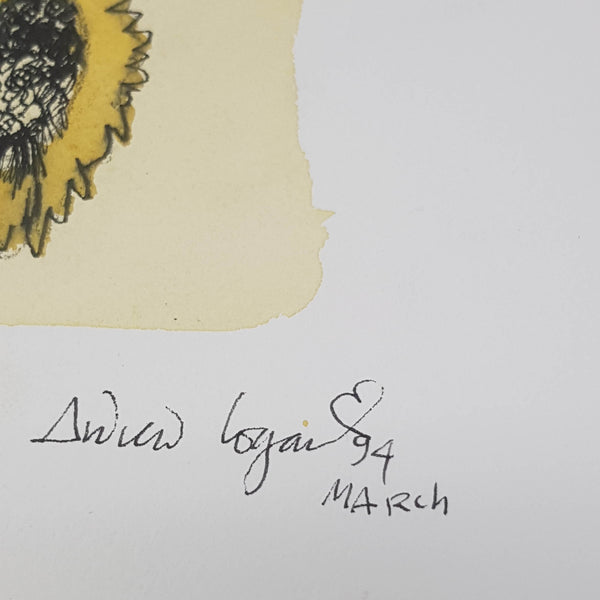 Andrew Logan ♡ 94
MARCh